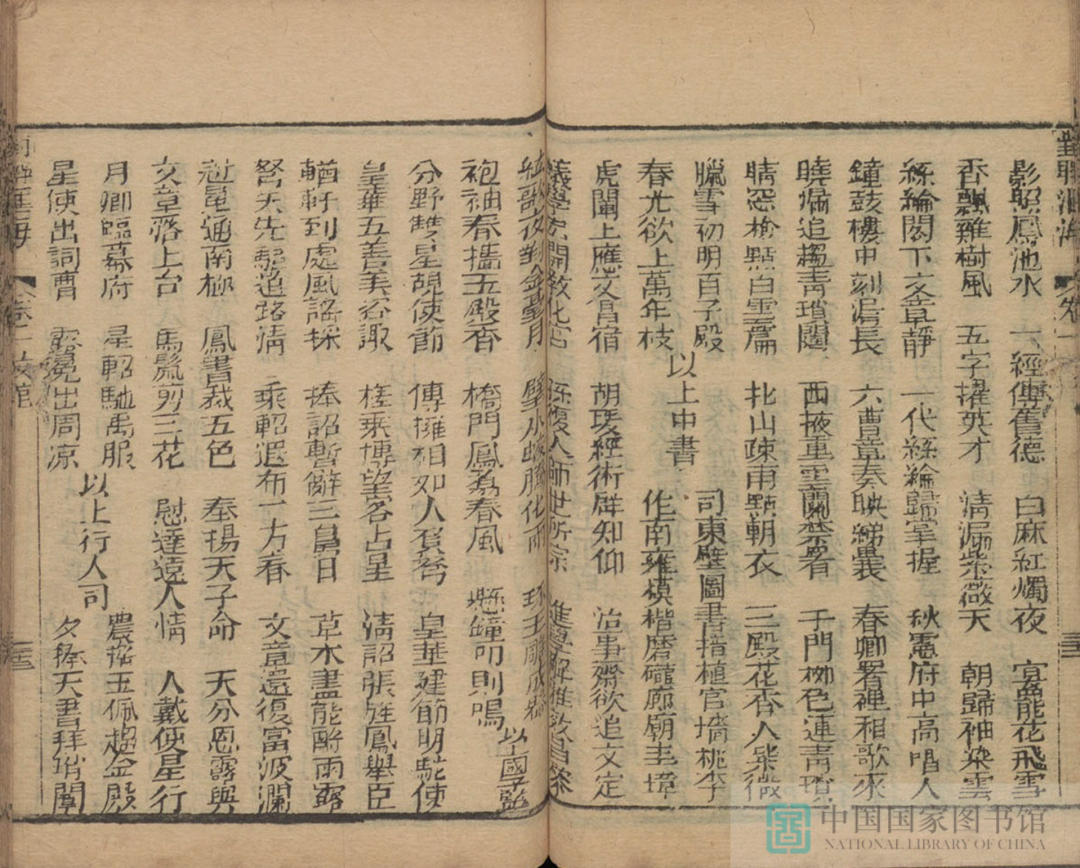 影照鳳池水 一經傳舊德 白麻紅燭夜 宮花飛雪
香飄雞樹風 五字擢英才 清漏紫薇天 朝歸袖染雲
絲綸閣下文章靜 一代絲綸歸掌握 秋憲府中高唱人
鐘鼓樓中刻漏長 六曹章奏映綈囊 春卿署裡相歌來
曉漏追趨青瑣闥 西掖重雲開禁署 千門柳色連青瑣
晴窓檢點白雲篇 北山疎雨點朝衣 三殿花香入紫薇
臘雪初明百子殿
春光欲上萬年枝
以上中書
司東壁圖書揩植官墻桃李
作南雍模楷磨礲廊廟圭璋
虎闈上應文昌宿 胡瑗經術群知仰 治事齋欲追文定
義學宏開敎化宮 人師世所宗
絃歌夜動金臺月
袍袖春搖玉殿香 橋門鳳荔春風 懸鐘叩則鳴
以上國子監
分野雙星胡使節 傳擁相如人負弩 皇華建節明駝使
皇華五善美咨諏 槎乘博望客占星 清詔張旌鳳舉臣
輶軒到處風謠採 捧詔暫辭三島日 草木盡能酧雨露
弩矢先驅道路清 乘軺遐布一方春 文章還復富波瀾
冠冕通南極 鳳書裁五色 奉揚天子命 天分恩露與
文章落上台 馬鬣剪三花 慰達遠人情 人戴使星行
月卿臨幕府 星軺馳萬服 農搖玉佩趨金殿
星使出詞曹 冕出周凉 夕奉天書拜瑣闈
以上行人司
中国国家图书馆
NATIONAL LIBRARY OF CHINA